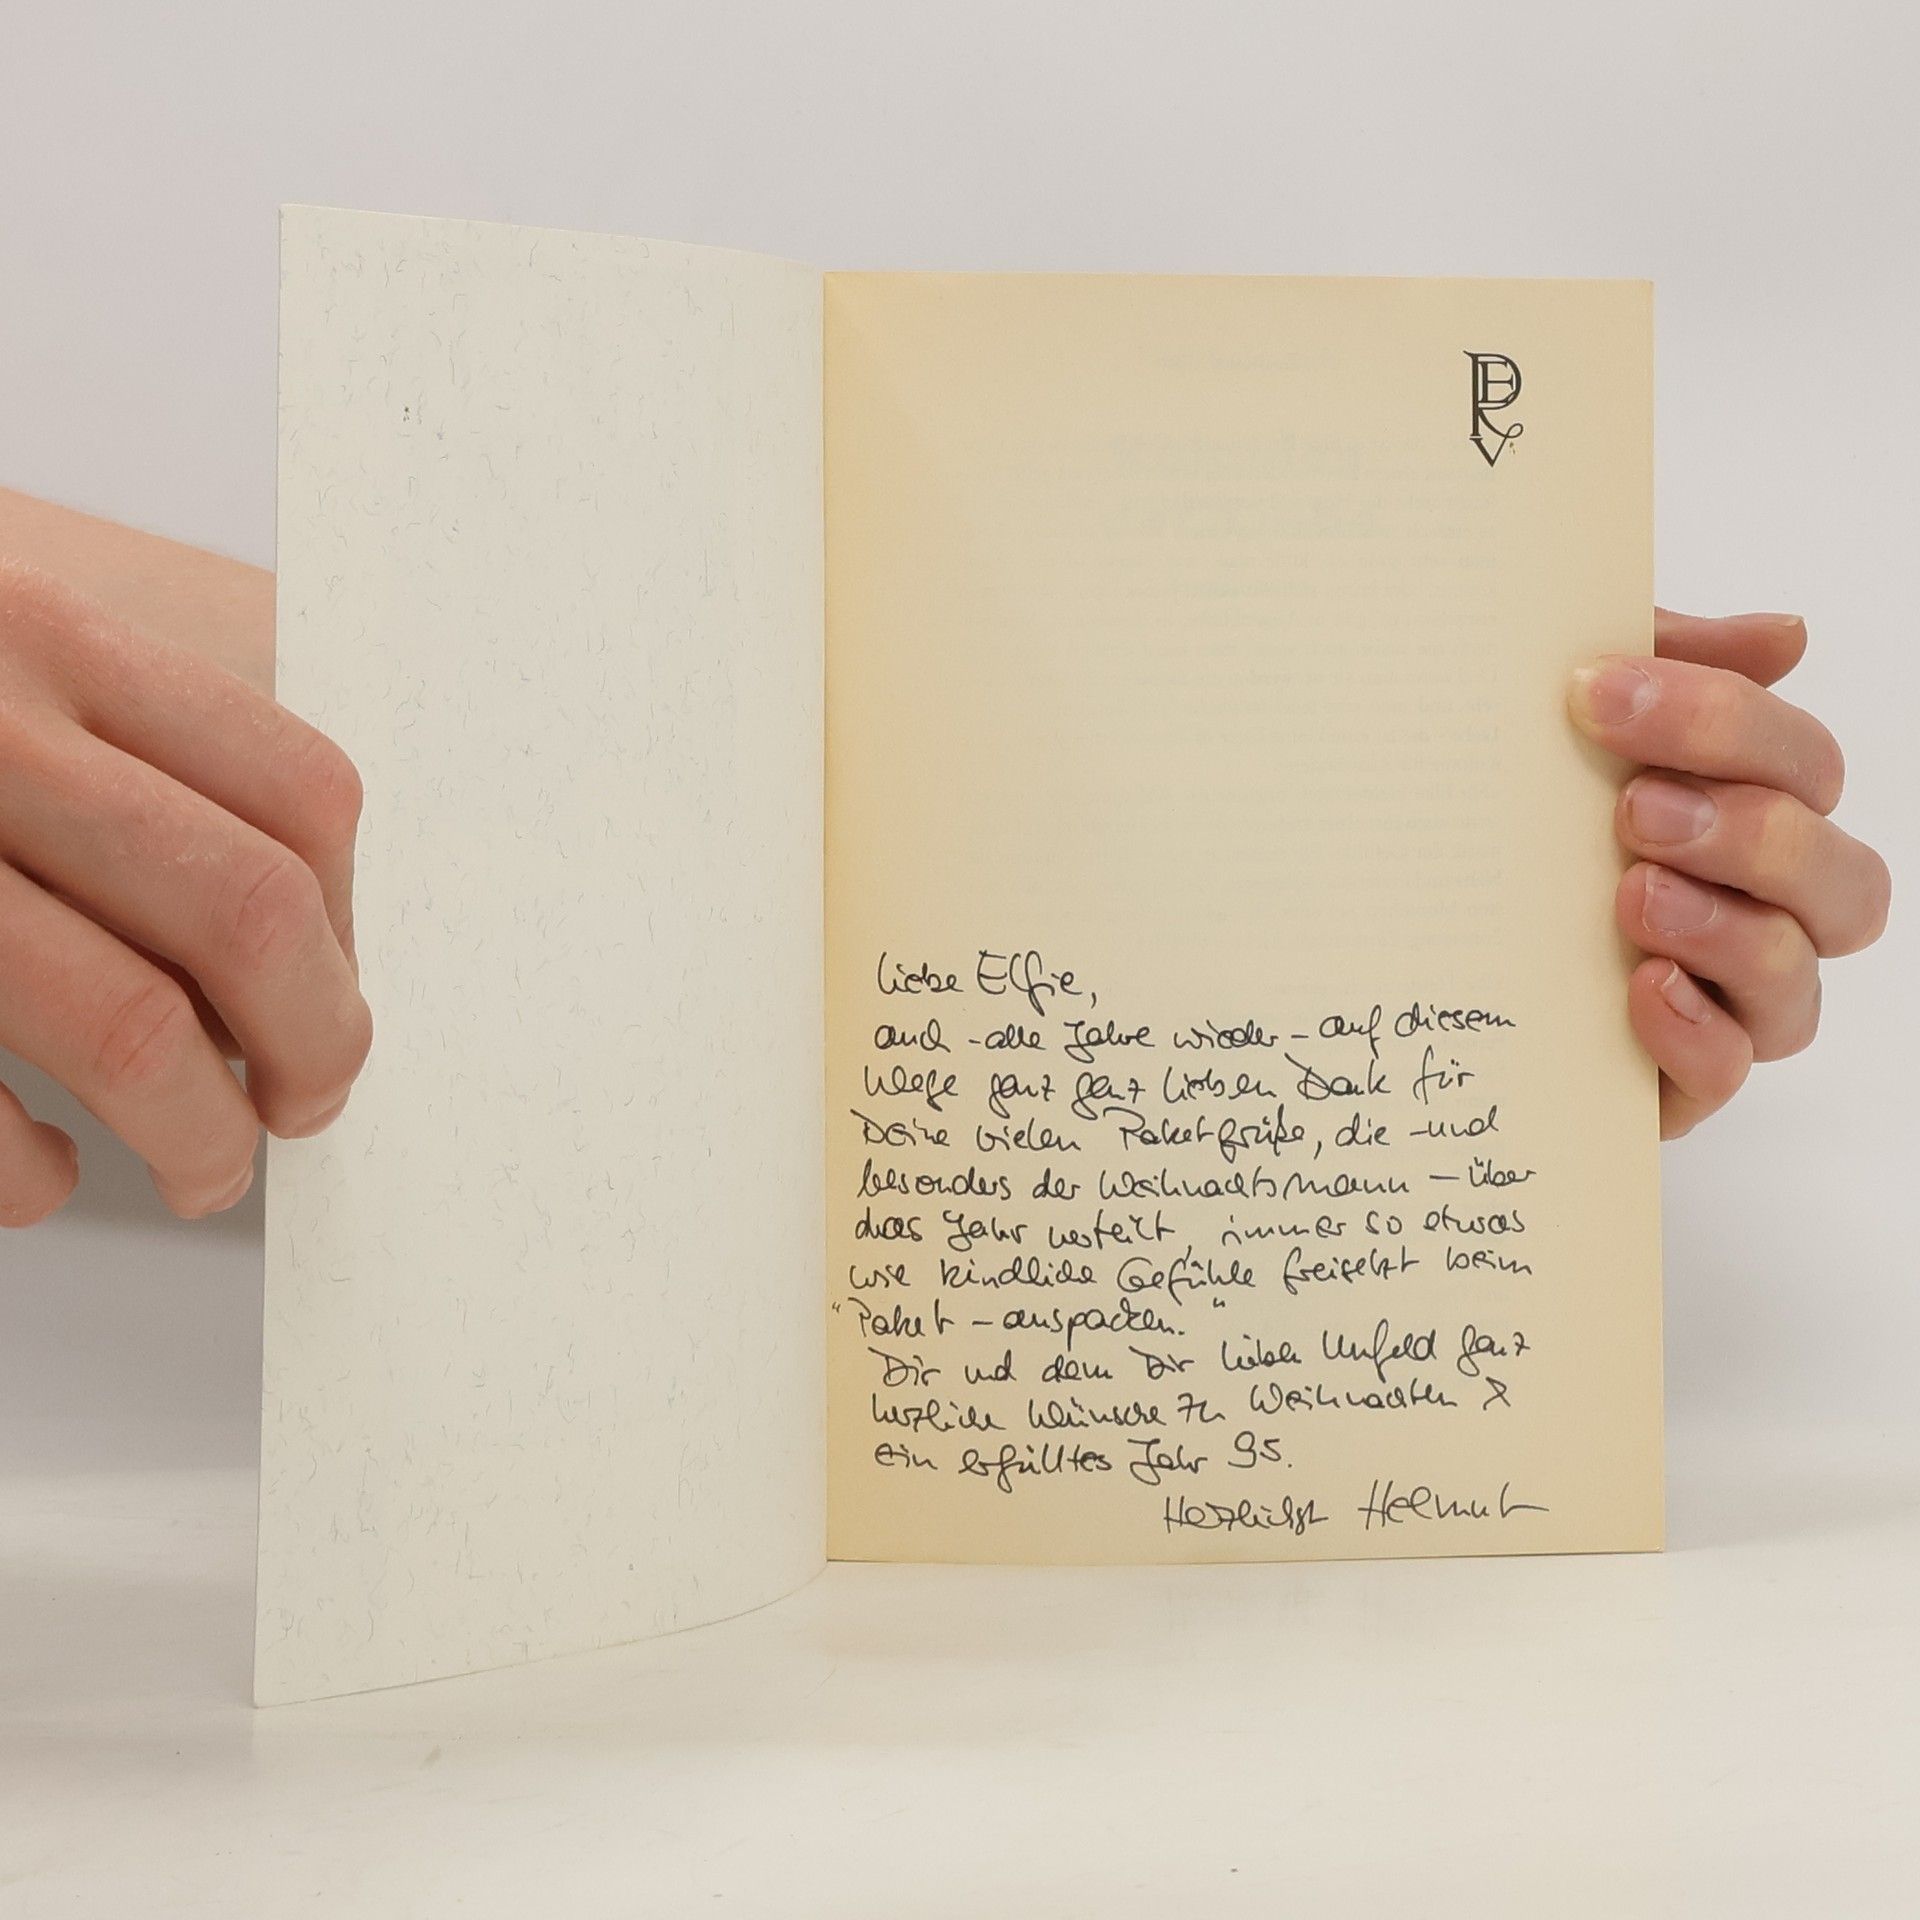 PERV
liebe Elfie,
auch - alle Jahre wieder - auf diesem
Wege ganz ganz lieben Dank für
Deine vielen Paketgrüße, die - und
besonders der Weihnachtsmann - über
das Jahr verteilt, immer so etwas
wie kindliche Gefühle freisetzt beim
"Paket - auspacken."
Dir und dem Dir lieben Umfeld ganz
herzliche Wünsche zu Weihnachten &
ein erfülltes Jahr 95.
Herzlichst Helmut